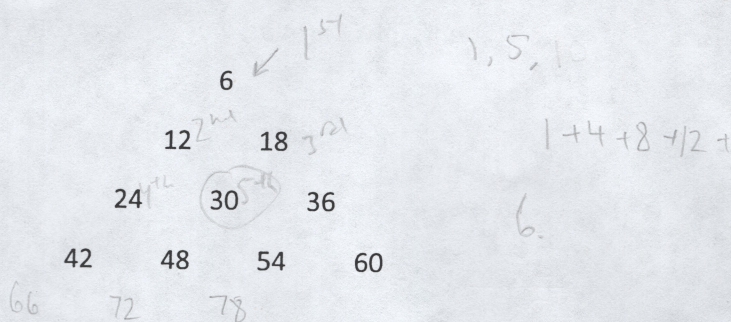 1st
6
1, 5, 10
12 2nd 18 3rd
1 + 4 + 8 + 12 +
24 4th 30 5th 36
6.
42 48 54 60
66 72 78